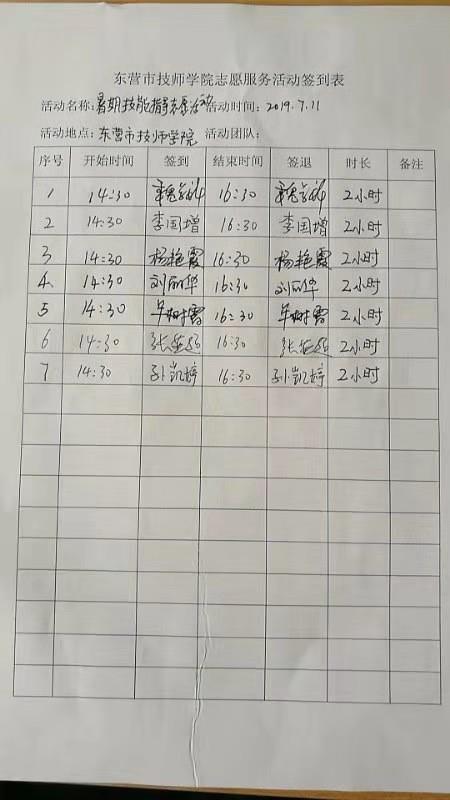 东营市技师学院志愿服务活动签到表
活动名称:暑期技能指导志愿活动 活动时间:2019.7.11
活动地点:东营市技师学院 活动团队:
序号 开始时间 签到 结束时间 签退 时长 备注
1 14:30 16:30 2小时
2 14:30 李国增 16:30 李国增 2小时
3 14:30 杨艳霞 16:30 杨艳霞 2小时
4 14:30 刘丽华 16:30 刘丽华 2小时
5 14:30 16:30 2小时
6 14:30 16:30 2小时
7 14:30 孙凯婷 16:30 孙凯婷 2小时